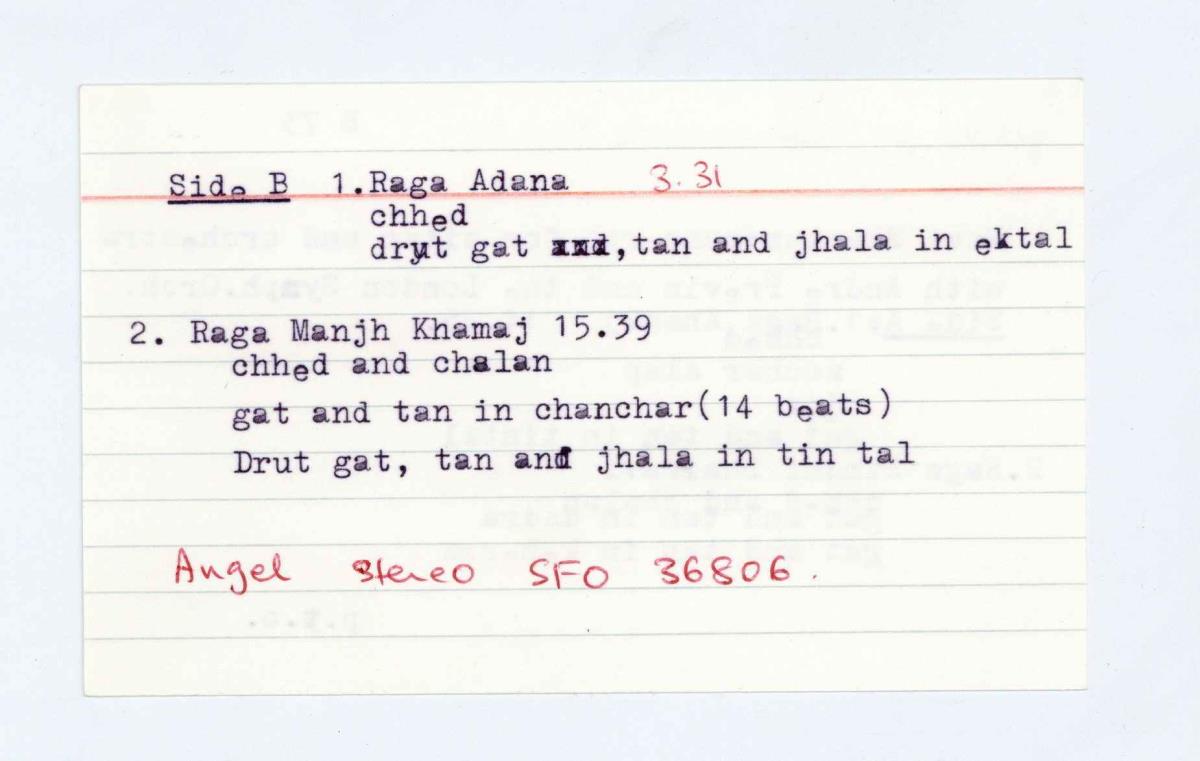 Side B 1.Raga Adana 3.31
chhed
drut gat xxx,tan and jhala in ektal
2. Raga Manjh Khamaj 15.39
chhed and chalan
gat and tan in chanchar(14 beats)
Drut gat, tan and jhala in tin tal
Angel Stereo SFO 36806.